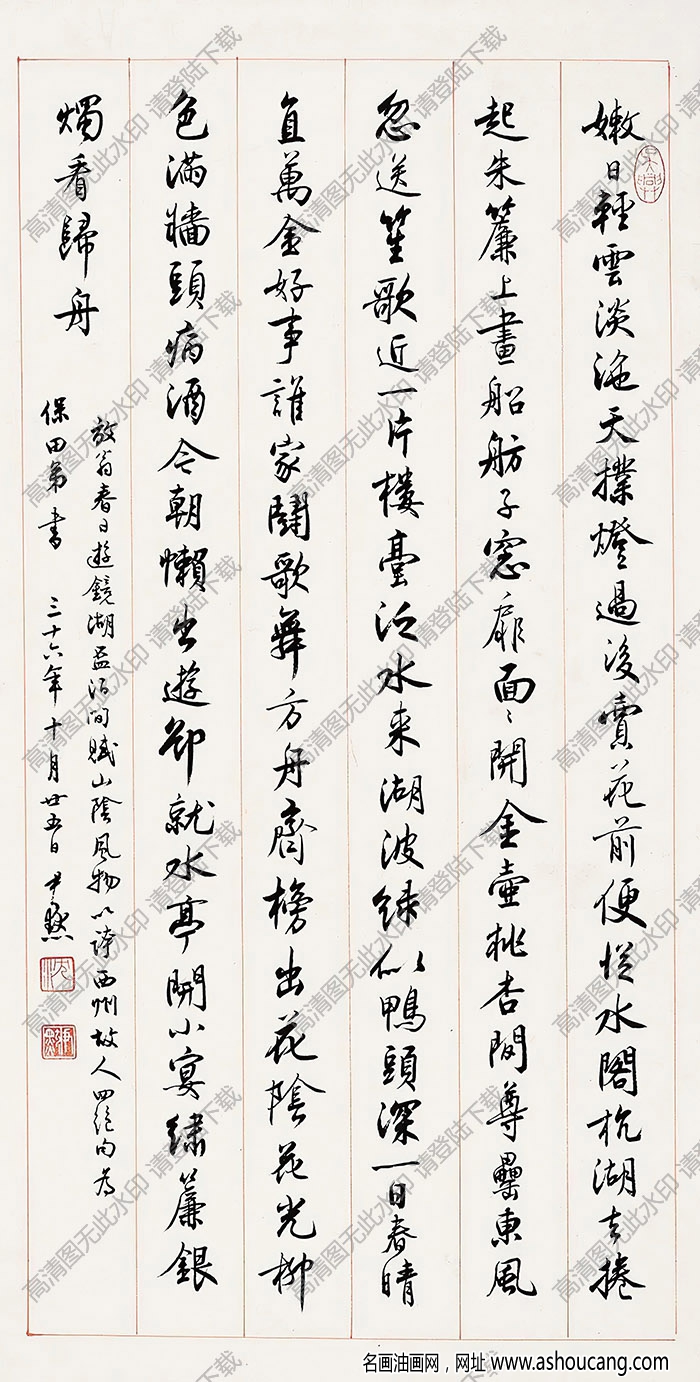 嫩日輕雲淡沲天撲燈過後賣花前便從水閣杭湖去捲
起朱簾上畫船舫子窓扉面〻開金壺桃杏間尊罍東風
忽送笙歌近一片樓臺泛水来湖波緑似鴨頭深一日春晴
直萬金好事誰家鬬歌舞方舟齊榜出花陰花光柳
色滿牆頭病酒今朝懶出遊卻就水亭開小宴繡簾銀
燭看歸舟
放翁春日遊鏡湖賦山陰風物以誇西州故人四絕句為
保田弟書 三十六年十月廿五日 尹默
吳興
沈
高清图无此水印 请登陆下载
名画油画网，网址 www.ashoucang.com